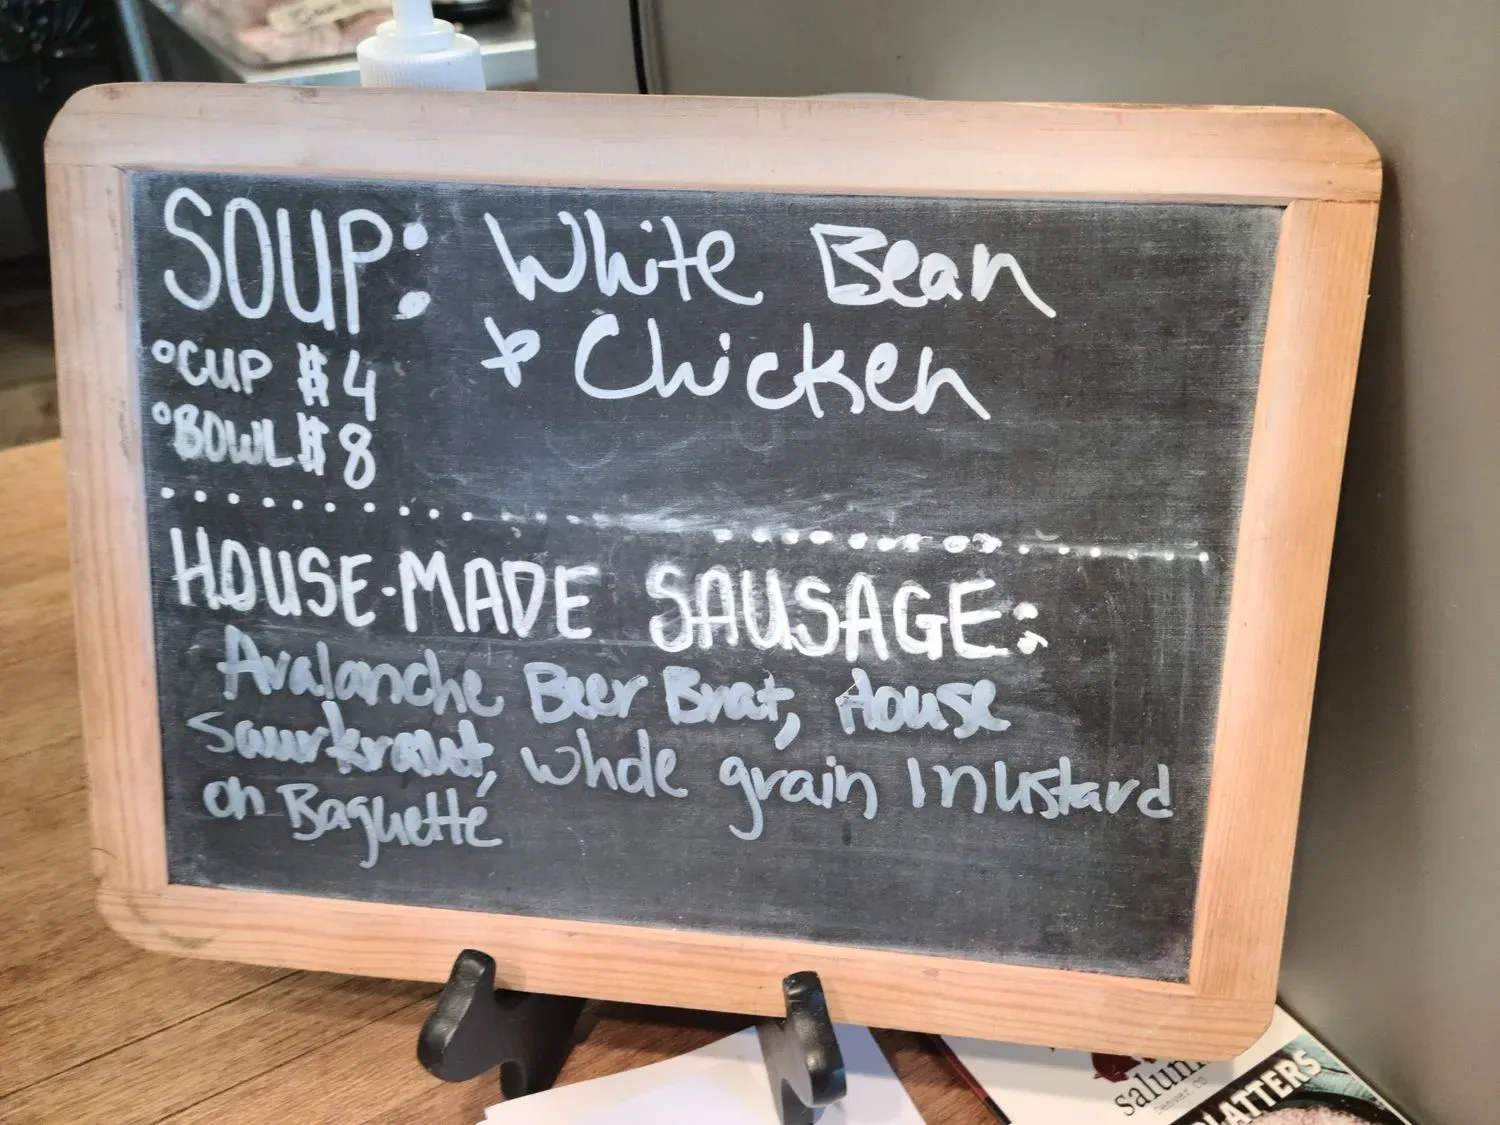 SOUP: White Bean
+ Chicken
CUP $4
BOWL $8
HOUSE-MADE SAUSAGE:
Avalanche Beer Brat, House
Saurkraut, whole grain mustard
on Baguette
Denver, CO
PLATTERS